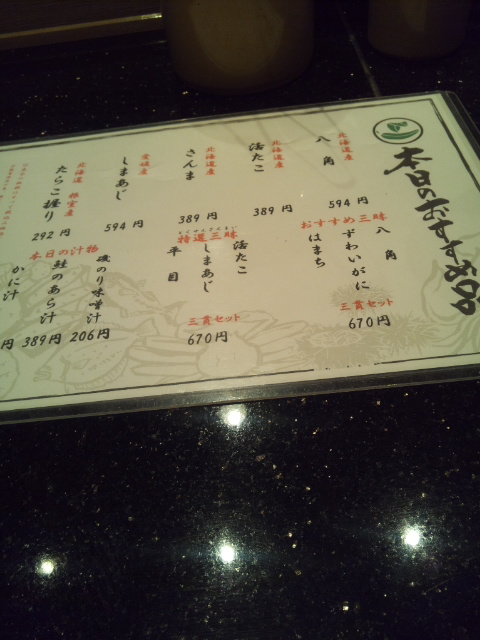 本日のおすすめ品
北海道産
八角
594円
北海道産
活たこ
389円
北海道産
さんま
389円
愛媛産
しまあじ
594円
北海道 根室産
たらこ握り
292円
おすすめ三昧
八角
ずわいがに
はまち
三貫セット
670円
特選三昧
活たこ
しまあじ
平目
三貫セット
670円
本日の汁物
磯のり味噌汁
206円
鮭のあら汁
389円
かに汁
円